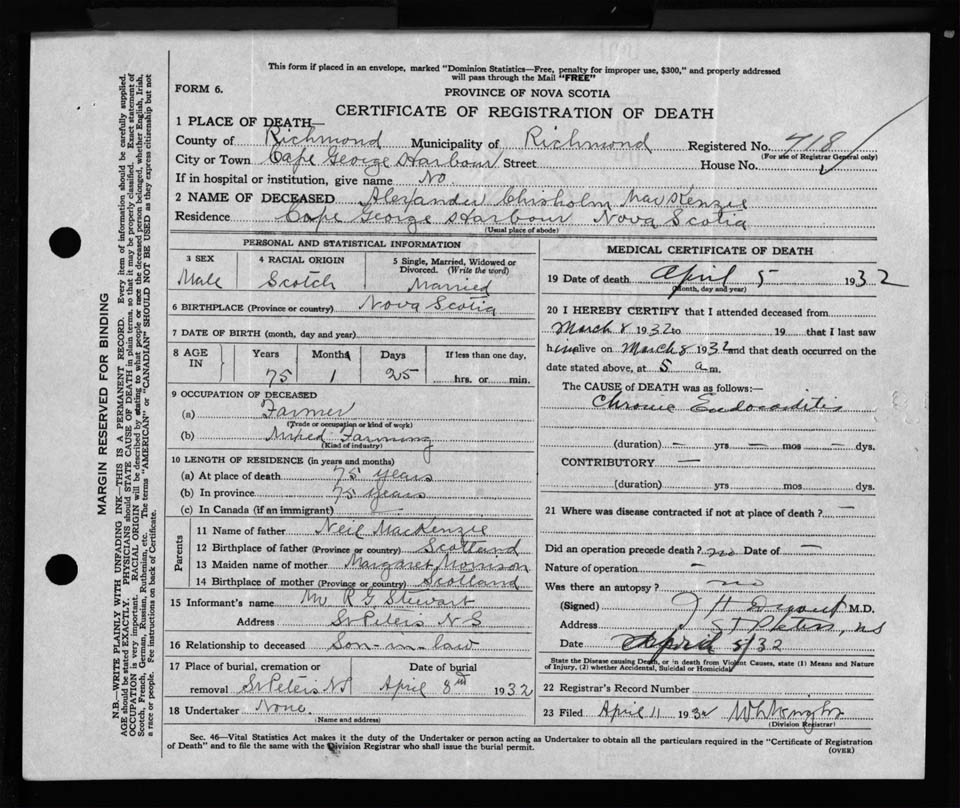 This form if placed in an envelope, marked "Dominion Statistics—Free, penalty for improper use, $300," and properly addressed
will pass through the Mail "FREE"
FORM 6.
PROVINCE OF NOVA SCOTIA
CERTIFICATE OF REGISTRATION OF DEATH
1 PLACE OF DEATH—
County of Richmond Municipality of Richmond Registered No. 718
(For use of Registrar General only)
City or Town Cape George Harbour Street House No.
If in hospital or institution, give name No.
2 NAME OF DECEASED Alexander Chisholm MacKenzie
Residence Cape George Harbour Nova Scotia
(Usual place of abode)
PERSONAL AND STATISTICAL INFORMATION
3 SEX 4 RACIAL ORIGIN 5 Single, Married, Widowed or
Divorced. (Write the word)
Male Scotch Married
6 BIRTHPLACE (Province or country) Nova Scotia
7 DATE OF BIRTH (month, day and year)
8 AGE IN Years Months Days If less than one day,
75 1 25 hrs. or min.
9 OCCUPATION OF DECEASED
(a) Farmer
(Trade or occupation or kind of work)
(b) Mixed Farming
(Kind of industry)
10 LENGTH OF RESIDENCE (in years and months)
(a) At place of death 75 years
(b) In province 75 years
(c) In Canada (if an immigrant)
Parents
11 Name of father Neil MacKenzie
12 Birthplace of father (Province or country) Scotland
13 Maiden name of mother Margaret Morrison
14 Birthplace of mother (Province or country) Scotland
15 Informant's name Mr R G Stewart
Address St Peters N S
16 Relationship to deceased Son-in-law
17 Place of burial, cremation or Date of burial
removal St Peters NS April 8 1932
18 Undertaker None.
(Name and address)
MEDICAL CERTIFICATE OF DEATH
19 Date of death April 5 1932
(Month, day and year)
20 I HEREBY CERTIFY that I attended deceased from
March 8 1932 to 19 that I last saw
him alive on March 8 1932 and that death occurred on the
date stated above, at 5 a m.
The CAUSE of DEATH was as follows:—
Chronic Endocaditis
(duration) — yrs — mos — dys.
CONTRIBUTORY —
(duration) yrs mos dys.
21 Where was disease contracted if not at place of death? —
Did an operation precede death? no Date of —
Nature of operation —
Was there an autopsy? no
(Signed) J H M.D.
Address St Peters, NS
Date April 8/32
State the Disease causing Death, or in death from Violent Causes, state (1) Means and Nature
of Injury, (2) whether Accidental, Suicidal or Homicidal
22 Registrar's Record Number
23 Filed April 11 1932 W Wright
(Division Registrar)
Sec. 46—Vital Statistics Act makes it the duty of the Undertaker or person acting as Undertaker to obtain all the particulars required in the "Certificate of Registration
of Death" and to file the same with the Division Registrar who shall issue the burial permit.
(OVER)
MARGIN RESERVED FOR BINDING
N.B.—WRITE PLAINLY WITH UNFADING INK—THIS IS A PERMANENT RECORD. Every item of information should be carefully supplied.
AGE should be stated EXACTLY. PHYSICIANS should STATE CAUSE OF DEATH in plain terms, so that it may be properly classified. Exact statement of
OCCUPATION is very important. RACIAL ORIGIN will be described by stating to what people or race the deceased person belonged, whether English, Irish,
Scotch, French, German, Russian, Ruthenian, etc. The terms "AMERICAN" or "CANADIAN" SHOULD NOT BE USED as they express citizenship but not
a race or people. See instructions on back of Certificate.